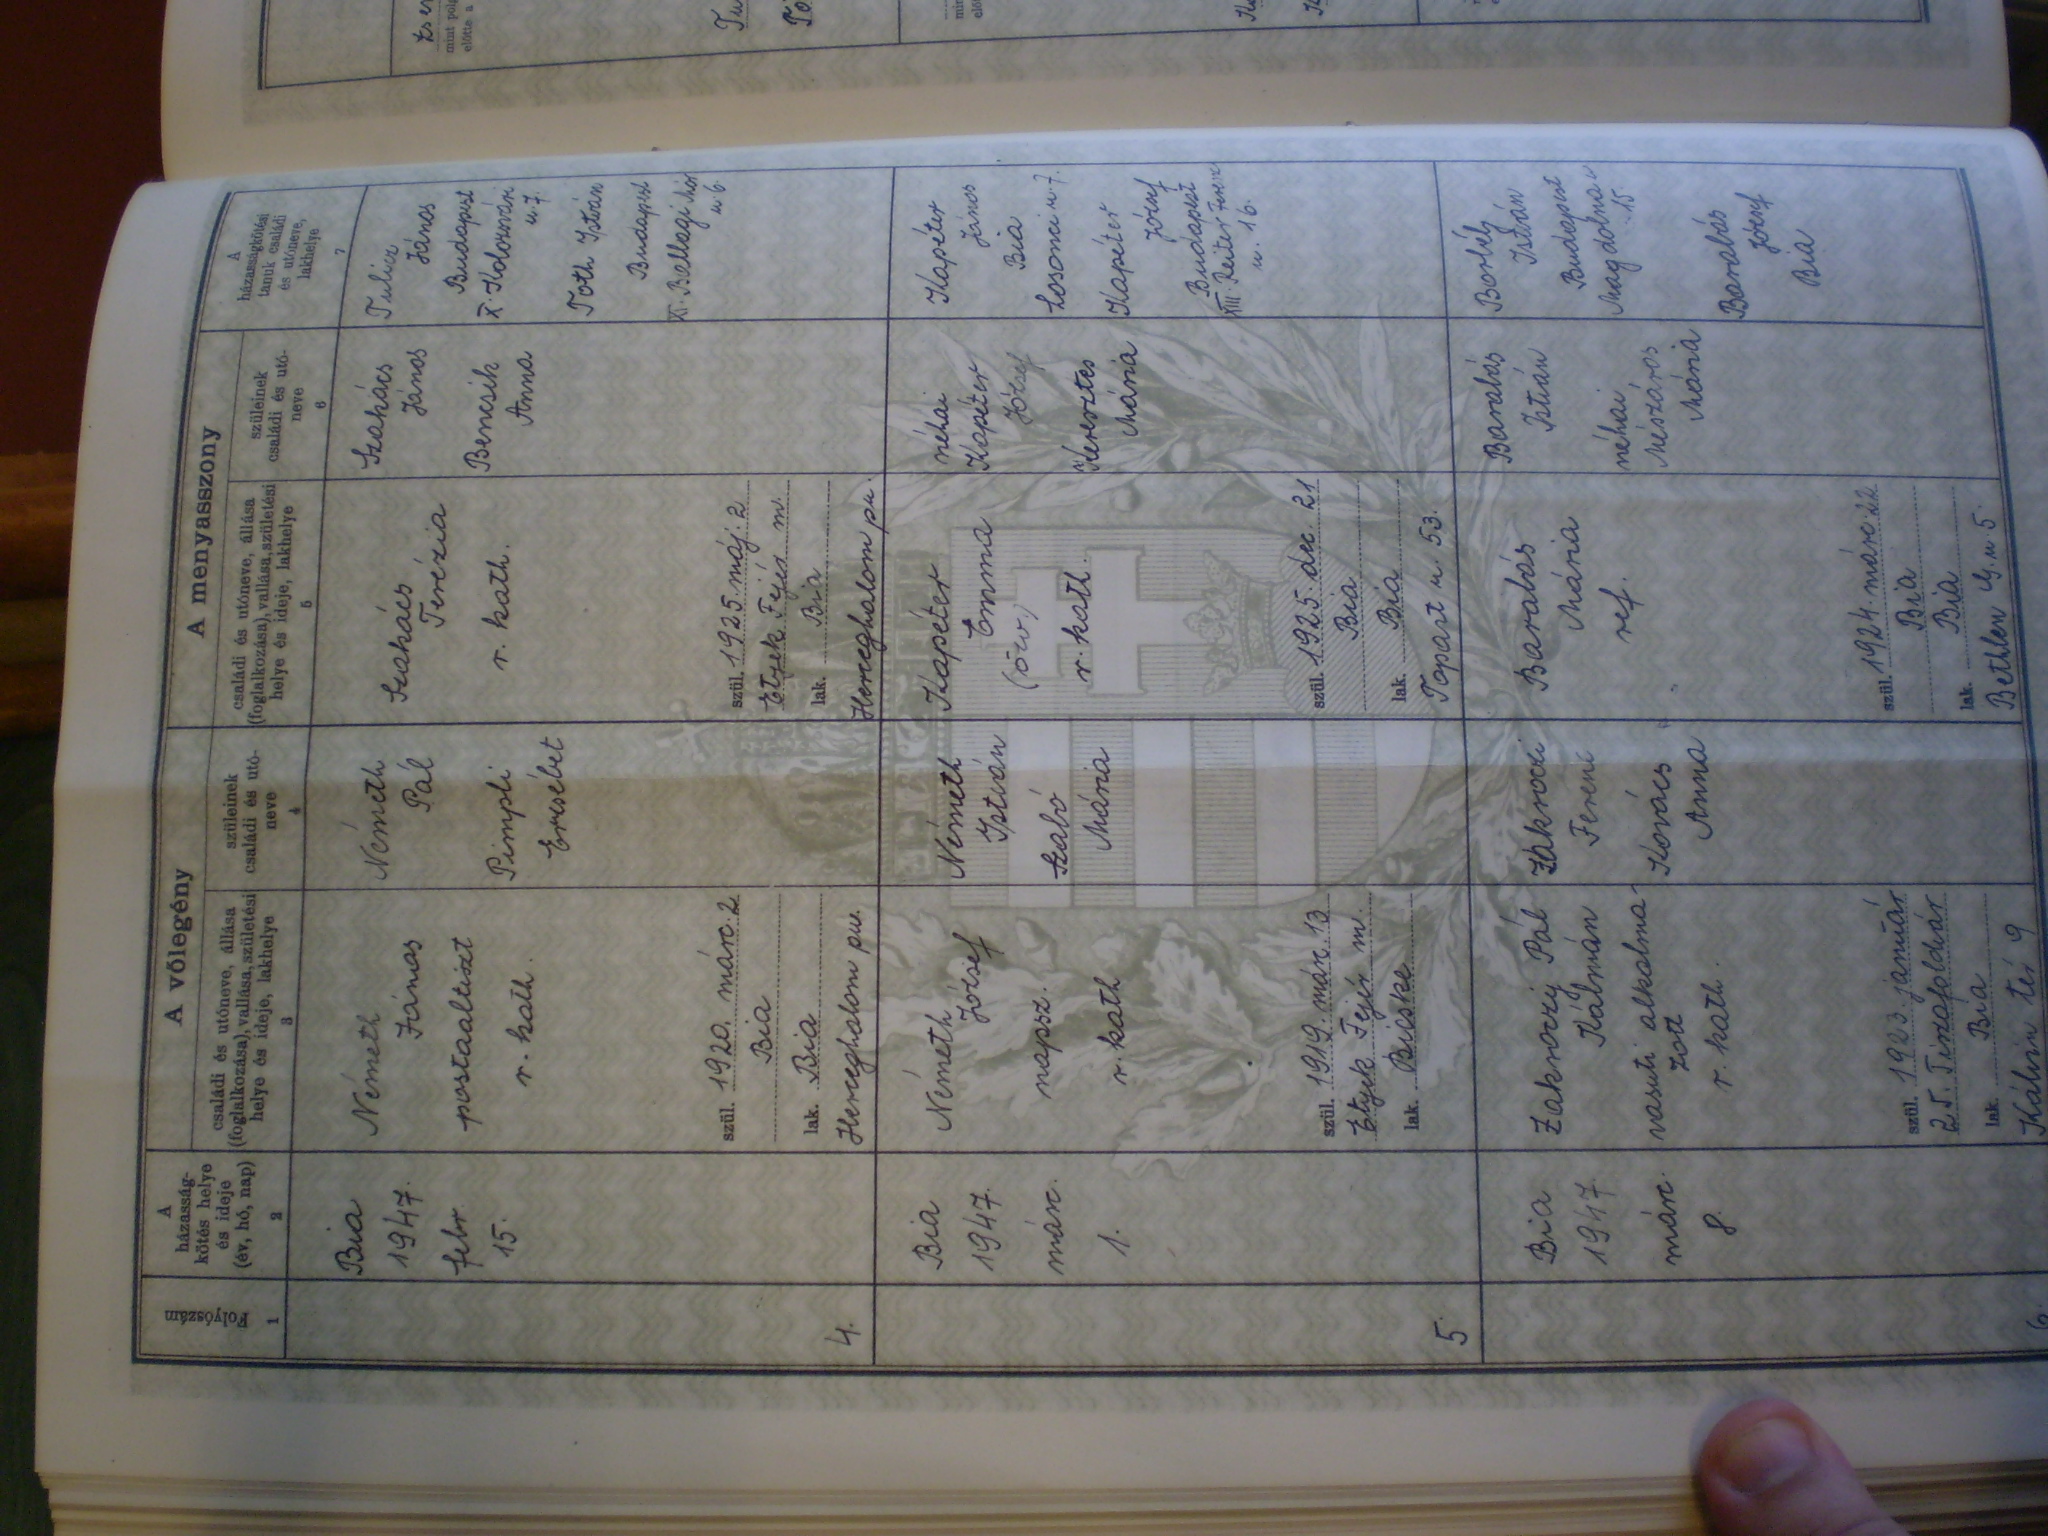 A völegény
A menyasszony
Folyószám
1
A
házasság-
kötés helye
és ideje
(év, hó, nap)
2
családi és utóneve, állása
(foglalkozása), vallása, születési
helye és ideje, lakhelye
3
szüleinek
családi és utó-
neve
4
családi és utóneve, állása
(foglalkozása), vallása, születési
helye és ideje, lakhelye
5
szüleinek
családi és utó-
neve
6
A
házasságkötési
tanuk családi
és utóneve,
lakhelye
7
4.
Bia
1947.
febr.
15.
Németh
János
postaaltiszt
r. kath.
szül. 1920. márc. 2
Bia
lak. Bia
Herceghalom pu.
Németh
Pál
Pimpli
Erzsébet
Szakács
Terézia
r. kath.
szül. 1925. máj. 2
Etyek Fejér m.
lak. Bia
Herceghalom pu.
Szakács
János
Bencsik
Anna
János
Budapest
XI. Kolozsvári
u. 7.
Toth István
Budapest
u 6.
5
Bia
1947.
márc.
1.
Németh
József
napsz.
r. kath
szül. 1919. márc. 13
Etyek Fejér m.
lak. Bicske
Németh
István
Szabó
Mária
Kapéter
Emma
(özv.)
r. kath.
szül. 1925. dec. 21
Bia
lak. Bia
Topart u. 53.
néhai
Kapéter
József
Keresztes
Mária
Kapéter
János
Bia
Losonci u. 7.
Kapéter
József
Budapest
XIII. Reiter Ferenc
u. 16.
6.
Bia
1947
márc.
8.
Zaknoczy Pál
Kálmán
vasuti alkalma-
zott
r. kath.
szül. 1923. január
25. Tiszaföldvár
lak. Bia
Kálvin tér 9
Záknocki
Ferenc
Kovács
Anna
Barabás
Mária
ref.
szül. 1924. márc. 22
Bia
lak. Bia
Bethlen G. u. 5.
Barabás
István
néhai
Mészáros
Mária
Borbély
István
Budapest
Magdolna u
15
Barabás
József
Bia
mint pol
előtte a